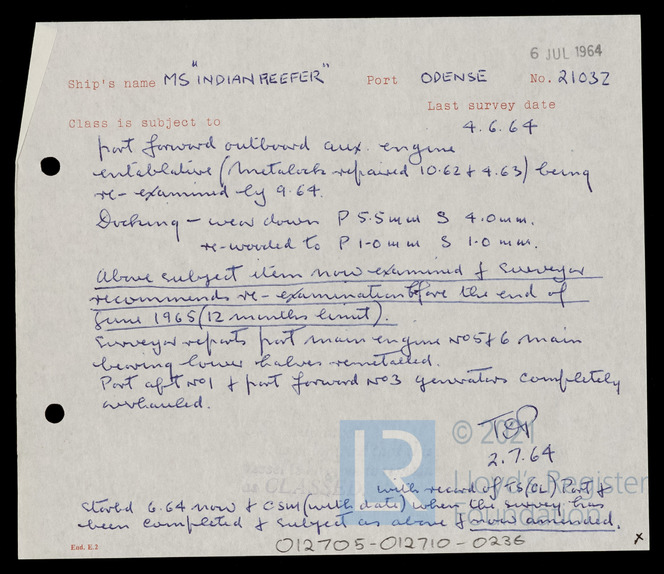 6 JUL 1964
Ship's name MS "INDIAN REEFER" Port ODENSE No. 21032
Last survey date
Class is subject to 4.6.64
port forward outboard aux. engine
entablature (Metalock repaired 10.62 & 4.63) being
re-examined by 9.64.
Docking - wear down P 5.5mm S 4.0mm.
re-wooded to P 1.0mm S 1.0mm.
Above subject item now examined & Surveyor
recommends re-examination before the end of
June 1965 (12 months limit).
Surveyor reports port main engine Nos 5 & 6 main
bearing lower halves remetalled.
Port aft No1 & port forward No3 generators completely
overhauled.
2.7.64
with record of CS(CL) Port &
Starbd 6.64 now & CSM (with date) when the survey has
been completed & subject as above & now amended.
End. E.2
012705-012710-0236
x
LR
© 2021
Lloyd's Register
Foundation